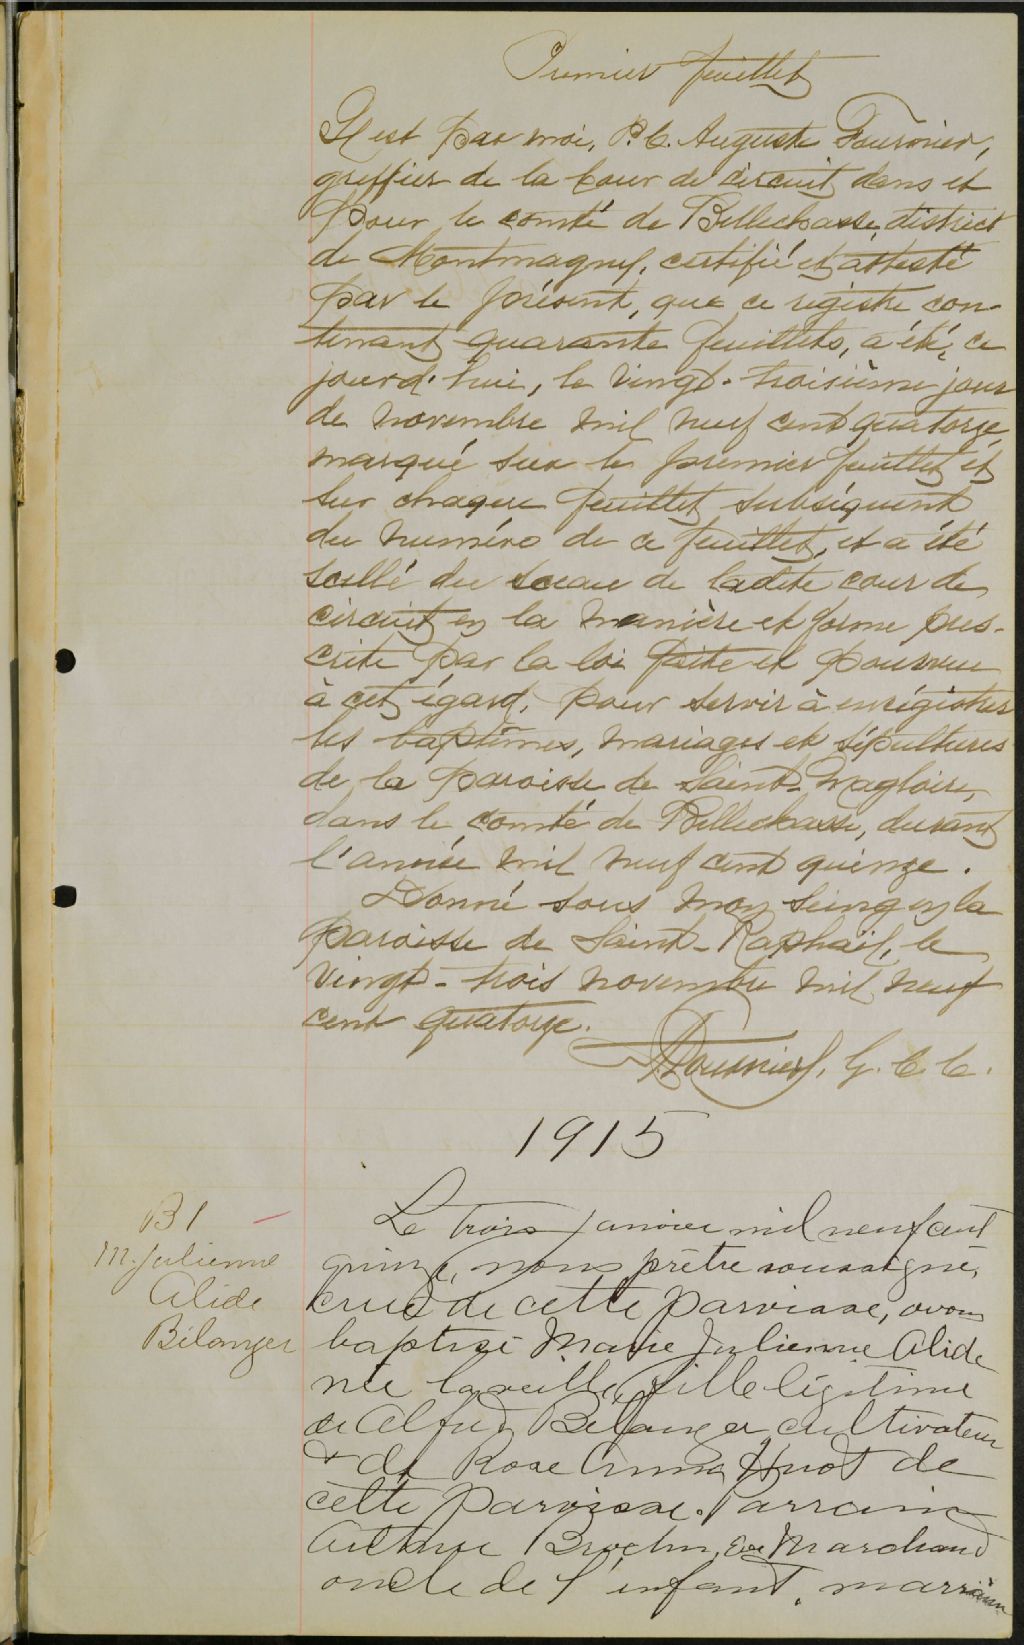 Premier feuillet
Il est par moi, P. C. Auguste Fournier,
greffier de la Cour de circuit dans et
pour le comté de Bellechasse, district
de Montmagny, certifié et attesté
par le présent, que ce régistre con-
tenant quarante feuillets, a été, ce
jourd'hui, le vingt-troisième jour
de novembre mil neuf cent quatorze,
marqué sur le premier feuillet et
sur chaque feuillet subséquent
du numéro de ce feuillet, et a été
scellé du sceau de ladite cour de
circuit en la manière et forme pres-
crite par la loi faite et pourvue
à cet égard, pour servir à enrégistrer
les baptêmes, mariages et sépultures
de la paroisse de Saint-Magloire,
dans le comté de Bellechasse, durant
l'année mil neuf cent quinze.
Donné sous mon seing en la
paroisse de Saint-Raphaël, le
vingt-trois novembre mil neuf
cent quatorze.
Fournier, G. C. C.
1915
B 1
M. Julienne
Alide
Bélanger
Le trois janvier mil neuf cent
quinze, nous prêtre soussigné,
curé de cette paroisse, avons
baptisé Marie Julienne Alide
née la veille, fille légitime
de Alfred Bélanger cultivateur
& de Rose Anna Huot de
cette paroisse. Parrain
Arthur Brochu, Marchand
oncle de l'enfant, marraine